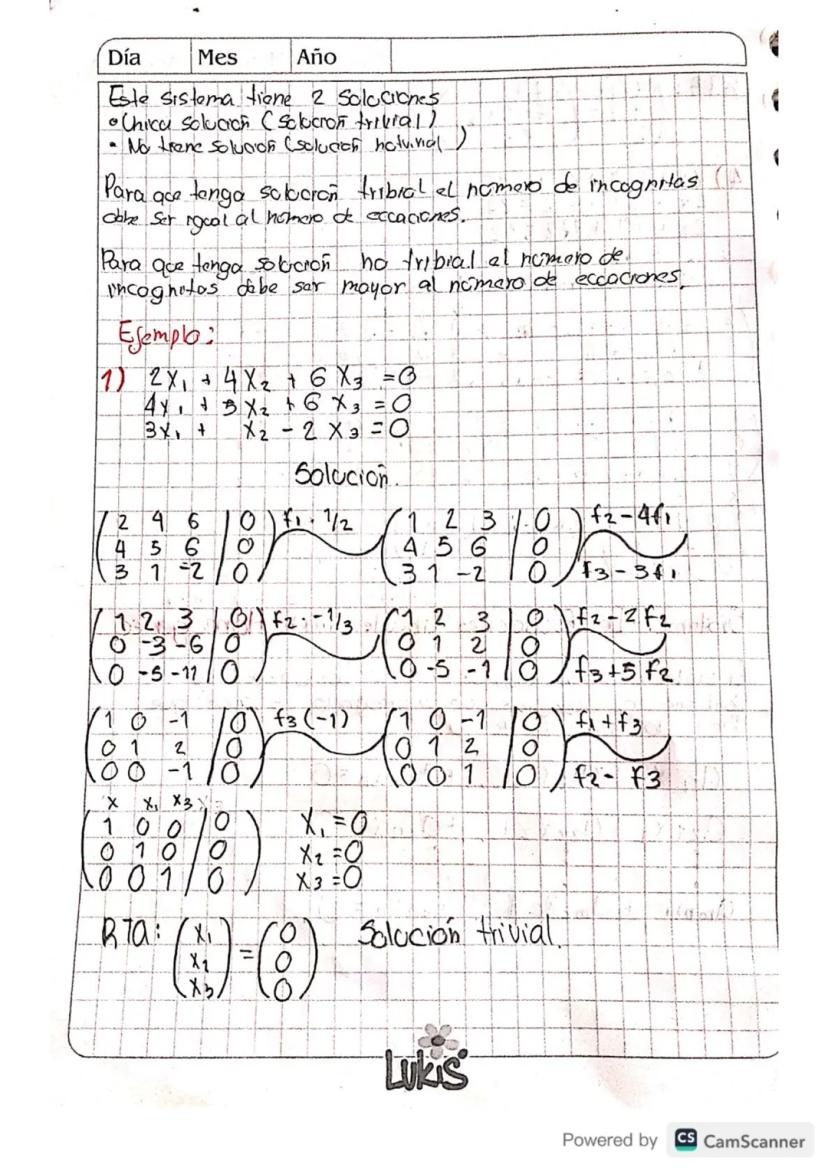 Día Mes Año
Este sistema tiene 2 soluciones
• Unica solución (solución tribial)
• No tiene solución (solución notrivial)
Para que tenga solución tribial el número de incognitas
debe ser igual al número de eccaciones.
Para que tenga solución no tribial el número de
incognitas debe ser mayor al número de eccociones.
Ejemplo:
1) 2x₁ + 4x₂ + 6x₃ = 0
4x₁ + 5x₂ + 6x₃ = 0
3x₁ + x₂ - 2x₃ = 0
Solución.
(2 4 6 | 0) f₁ · 1/2 (1 2 3 | 0) f₂-4f₁
(4 5 6 | 0) (4 5 6 | 0)
(3 1 -2 | 0) (3 1 -2 | 0) f₃-3f₁
(1 2 3 | 0) f₂ · -1/3 (1 2 3 | 0) f₂-2f₂
(0 -3 -6 | 0) (0 1 2 | 0)
(0 -5 -11 | 0) (0 -5 -1 | 0) f₃+5f₂
(1 0 -1 | 0) f₃(-1) (1 0 -1 | 0) f₁+f₃
(0 1 2 | 0) (0 1 2 | 0)
(0 0 -1 | 0) (0 0 1 | 0) f₂- f₃
x x₁ x₃
(1 0 0 | 0) x₁=0
(0 1 0 | 0) x₂=0
(0 0 1 | 0) x₃=0
RTA: (x₁) = (0) Solución trivial.
(x₂) (0)
(x₃) (0)
LUKIS
Powered by CS CamScanner